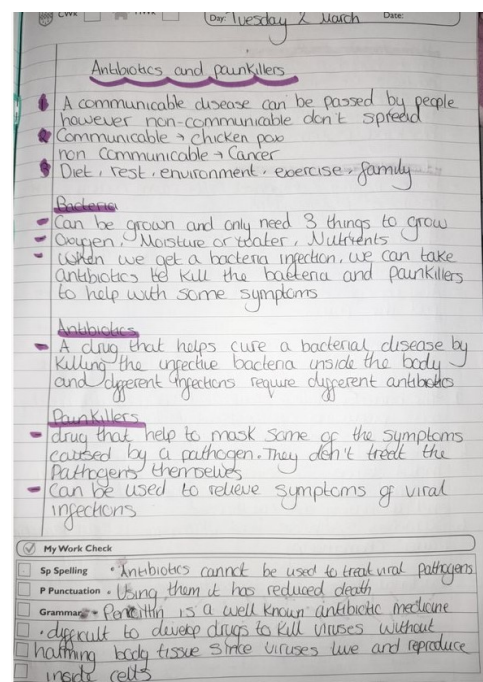 Day: Tuesday 2 March Date:
Antibiotics and painkillers
1 A communicable disease can be passed by people
however non-communicable don't spread
2 Communicable → chicken pox
non communicable → Cancer
3 Diet, rest, environment, exercise, family
Bacteria
- Can be grown and only need 3 things to grow
- Oxygen, Moisture or water, Nutrients
- When we get a bacteria infection, we can take
antibiotics to kill the bacteria and painkillers
to help with some symptoms
Antibiotics
- A drug that helps cure a bacterial disease by
killing the infective bacteria inside the body
and different infections require different antibiotics
Painkillers
- drug that help to mask some of the symptoms
caused by a pathogen. They don't treat the
Pathogens themselves
- Can be used to relieve symptoms of viral
infections
My Work Check
Sp Spelling • Antibiotics cannot be used to treat viral pathogens
P Punctuation • Using them it has reduced death
Grammar • Penicillin is a well known antibiotic medicine
• difficult to develop drugs to kill viruses without
harming body tissue since viruses live and reproduce
inside cells